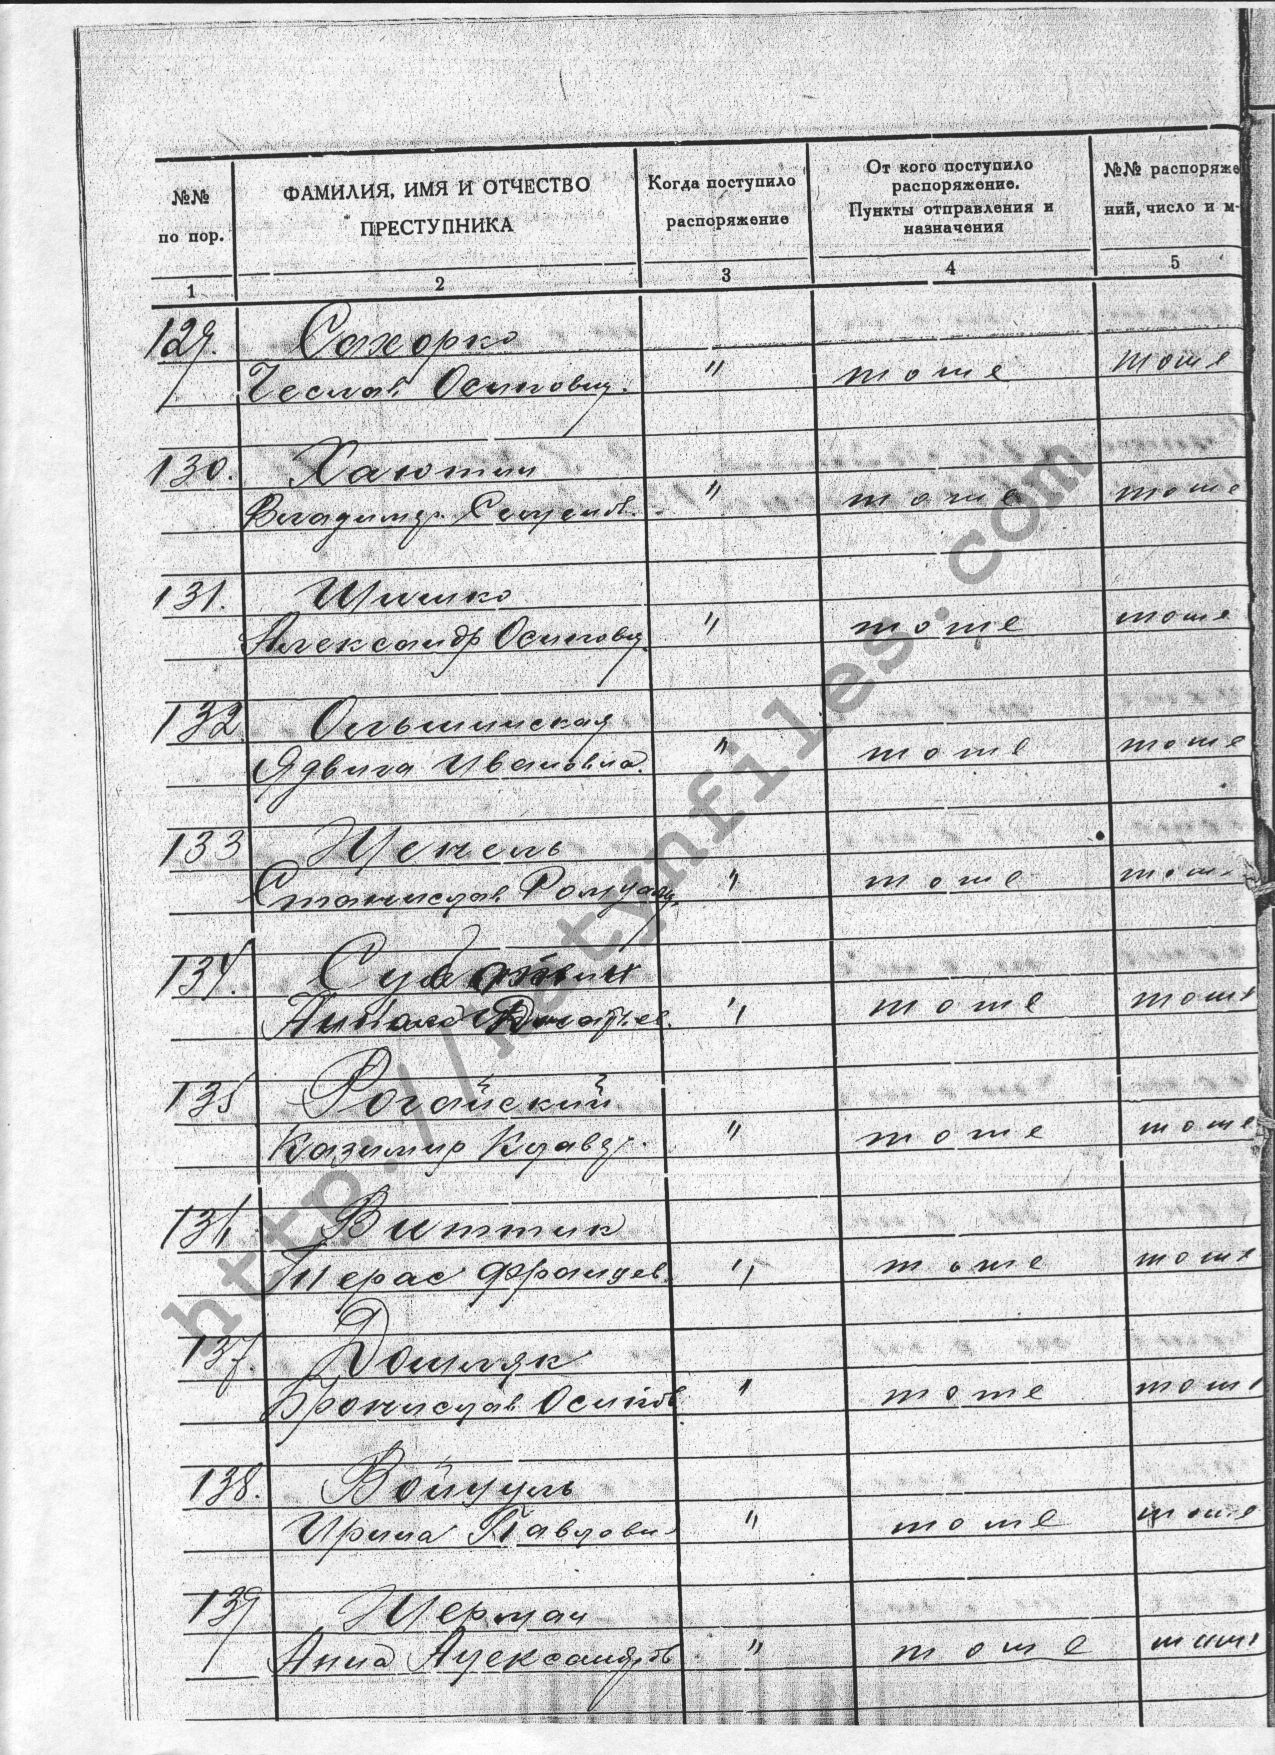 №№ по пор.
ФАМИЛИЯ, ИМЯ И ОТЧЕСТВО ПРЕСТУПНИКА
Когда поступило распоряжение
От кого поступило распоряжение. Пункты отправления и назначения
№№ распоряже
ний, число и м-
1 2 3 4 5
129. Сахорко
Чеслав Осипович. " тоже тоже
130. Хаютин
Владимир " тоже тоже
131. Шишко
Александр Осипович " тоже тоже
132 Ольшинская
Ядвига Ивановна. " тоже тоже
133
Станислав Ромуальд. " тоже тоже
134.
" тоже тоже
135 Рогайский
Казимир " тоже тоже
136 Виттик
Францев. " тоже тоже
137. Домляк
Бронислав Осипов " тоже тоже
138.
Ирина Павловн " тоже тоже
139 Шерман
Анна Александров " тоже тоже
http://katynfiles.com